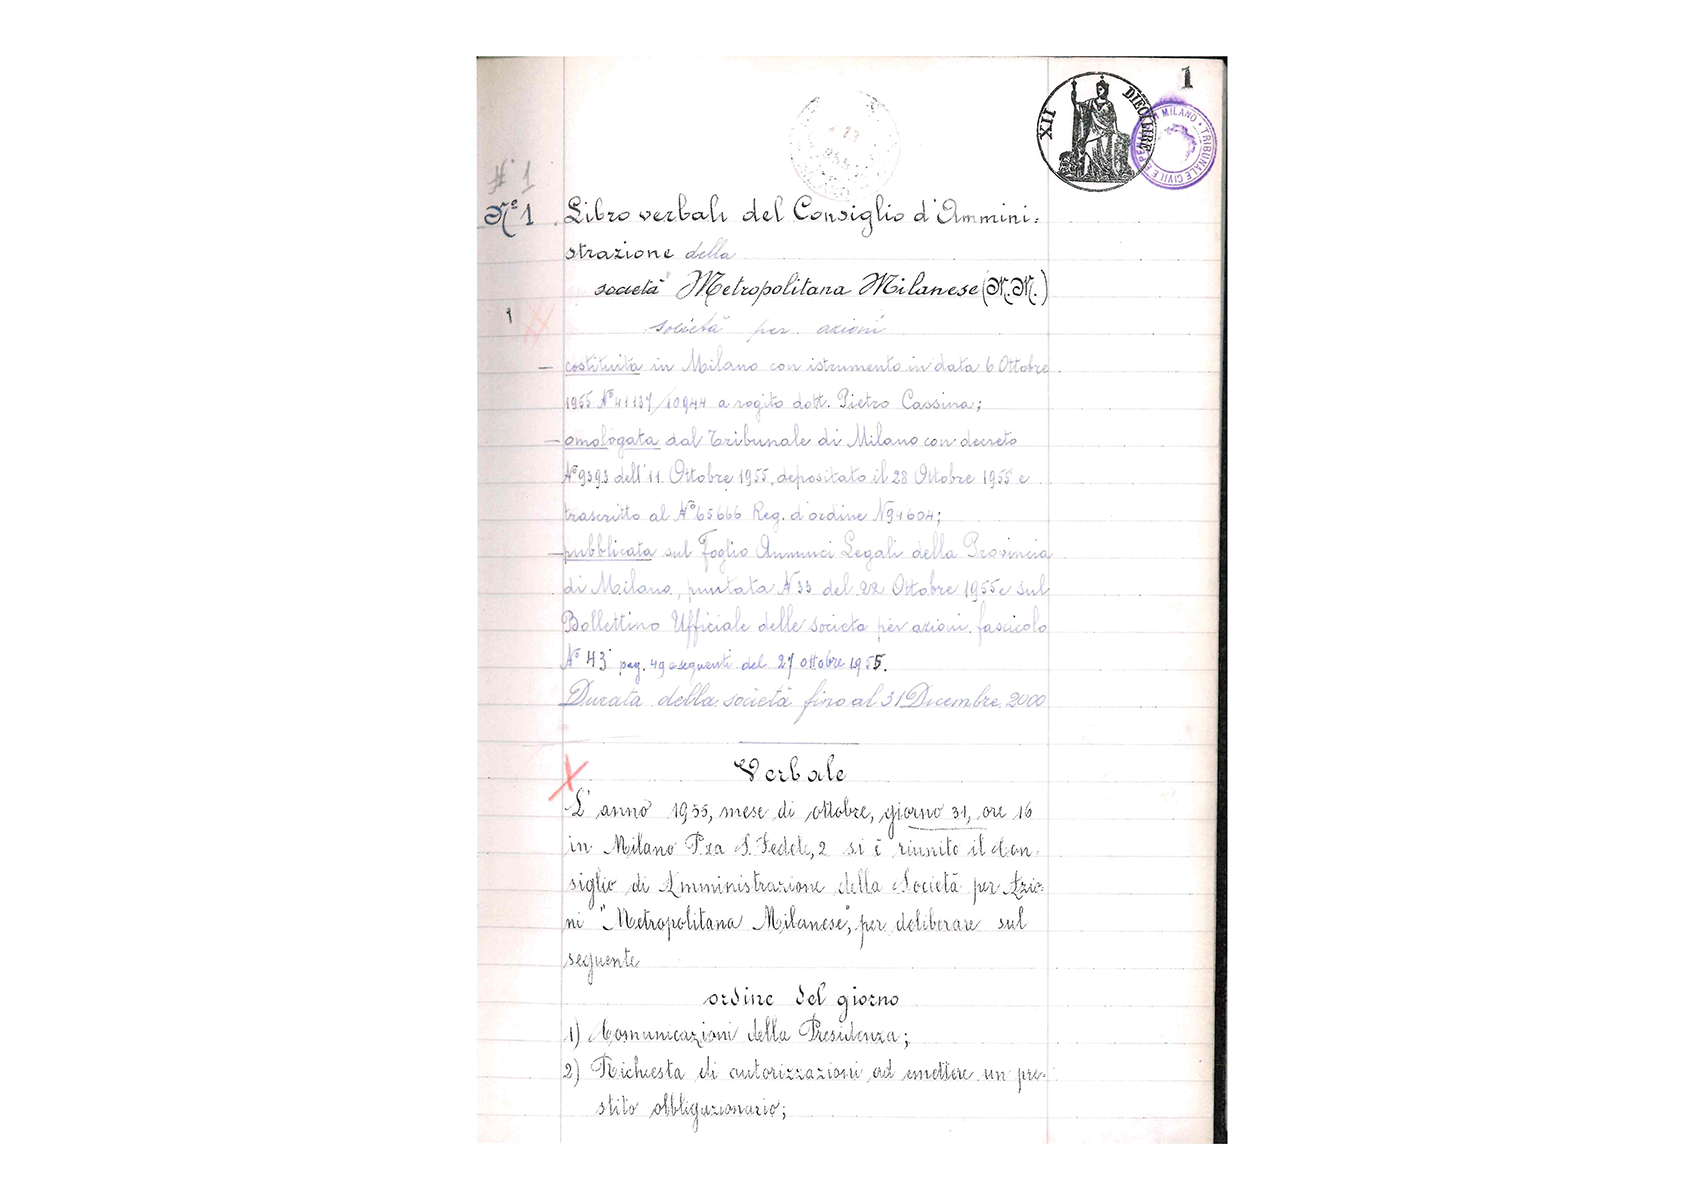 1
XII DIECI LIRE
MILANO * TRIBUNALE CIVILE E PEN
N. 1
N° 1 Libro verbali del Consiglio d'Ammini:
strazione della
società "Metropolitana Milanese (M.M.)
1
società per azioni
– costituita in Milano con istrumento in data 6 Ottobre
1955 N° 41137/10944 a rogito dott. Pietro Cassina;
– omologata dal Tribunale di Milano con decreto
N° 9393 dell'11 Ottobre 1955, depositato il 28 Ottobre 1955 e
trascritto al N° 65666 Reg. d'ordine N 94604;
– pubblicata sul Foglio Annunci Legali della Provincia
di Milano, puntata N 33 del 22 Ottobre 1955 e sul
Bollettino Ufficiale delle società per azioni fascicolo
N° 43 pag. 49 e seguenti del 27 ottobre 1955.
Durata della società fino al 31 Dicembre 2000
Verbale
L'anno 1955, mese di ottobre, giorno 31, ore 16
in Milano P.za S. Fedele, 2 si è riunito il Con:
siglio di Amministrazione della Società per Azio:
ni "Metropolitana Milanese", per deliberare sul
seguente
ordine del giorno
1) Comunicazioni della Presidenza;
2) Richiesta di autorizzazioni ad emettere un pre:
stito obbligazionario;